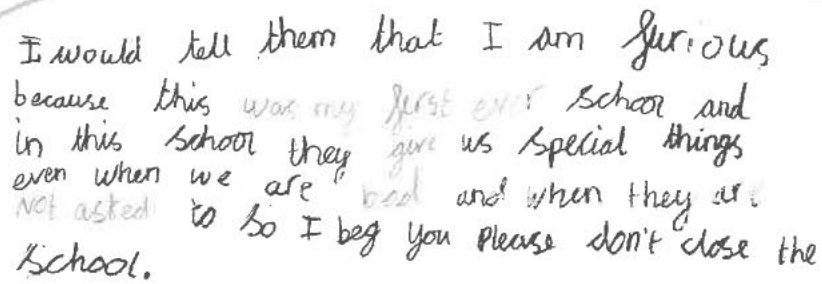 I would tell them that I am furious
because this was my first ever school and
in this school they give us special things
even when we are bad and when they are
not asked to so I beg you please don't close the
school.